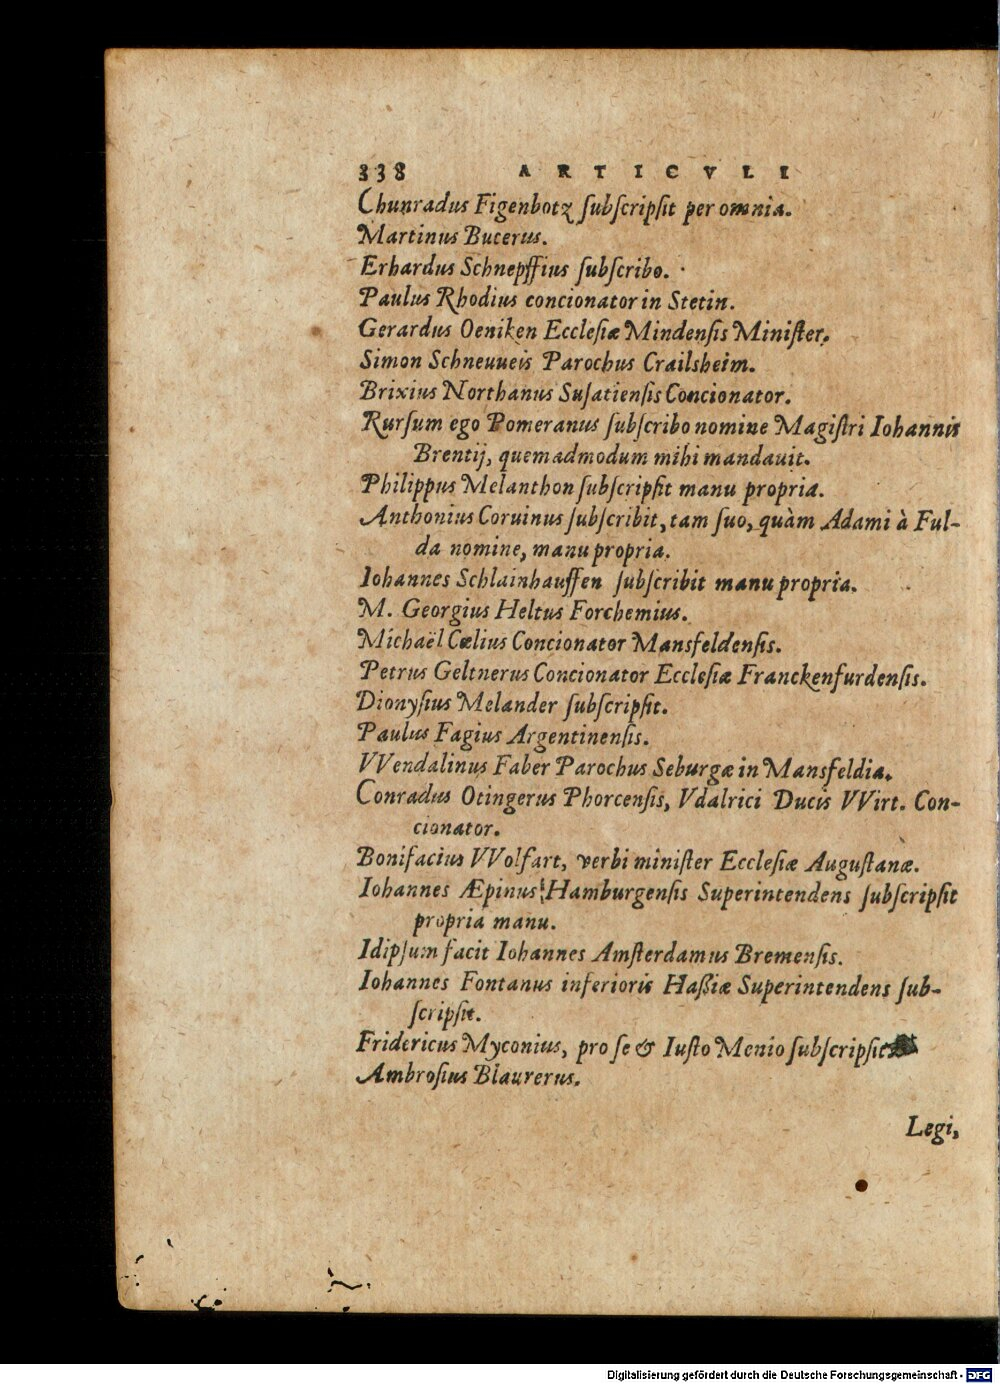 338 ARTICVLI
Chunradus Figenbotz ſubſcripſit per omnia.
Martinus Bucerus.
Erhardus Schnepffius ſubſcribo.
Paulus Rhodius concionator in Stetin.
Gerardus Oeniken Eccleſiæ Mindenſis Miniſter.
Simon Schneuueis Parochus Crailsheim.
Brixius Northanus Suſatienſis Concionator.
Rurſum ego Pomeranus ſubſcribo nomine Magiſtri Iohannis
Brentij, quemadmodum mihi mandauit.
Philippus Melanthon ſubſcripſit manu propria.
Anthonius Coruinus ſubſcribit, tam ſuo, quàm Adami à Ful-
da nomine, manu propria.
Iohannes Schlainhauffen ſubſcribit manu propria.
M. Georgius Heltus Forchemius.
Michaël Cœlius Concionator Mansfeldenſis.
Petrus Geltnerus Concionator Eccleſiæ Franckenfurdenſis.
Dionyſius Melander ſubſcripſit.
Paulus Fagius Argentinenſis.
VVendalinus Faber Parochus Seburgæ in Mansfeldia.
Conradus Otingerus Phorcenſis, Vdalrici Ducis VVirt. Con-
cionator.
Bonifacius VVolfart, verbi miniſter Eccleſiæ Auguſtanæ.
Iohannes Æpinus Hamburgenſis Superintendens ſubſcripſit
propria manu.
Idipſum facit Iohannes Amſterdamus Bremenſis.
Iohannes Fontanus inferioris Haßiæ Superintendens ſub-
ſcripſit.
Fridericus Myconius, pro ſe & Iuſto Menio ſubſcripſit
Ambroſius Blaurerus.
Legi,
Digitalisierung gefördert durch die Deutsche Forschungsgemeinschaft - DFG